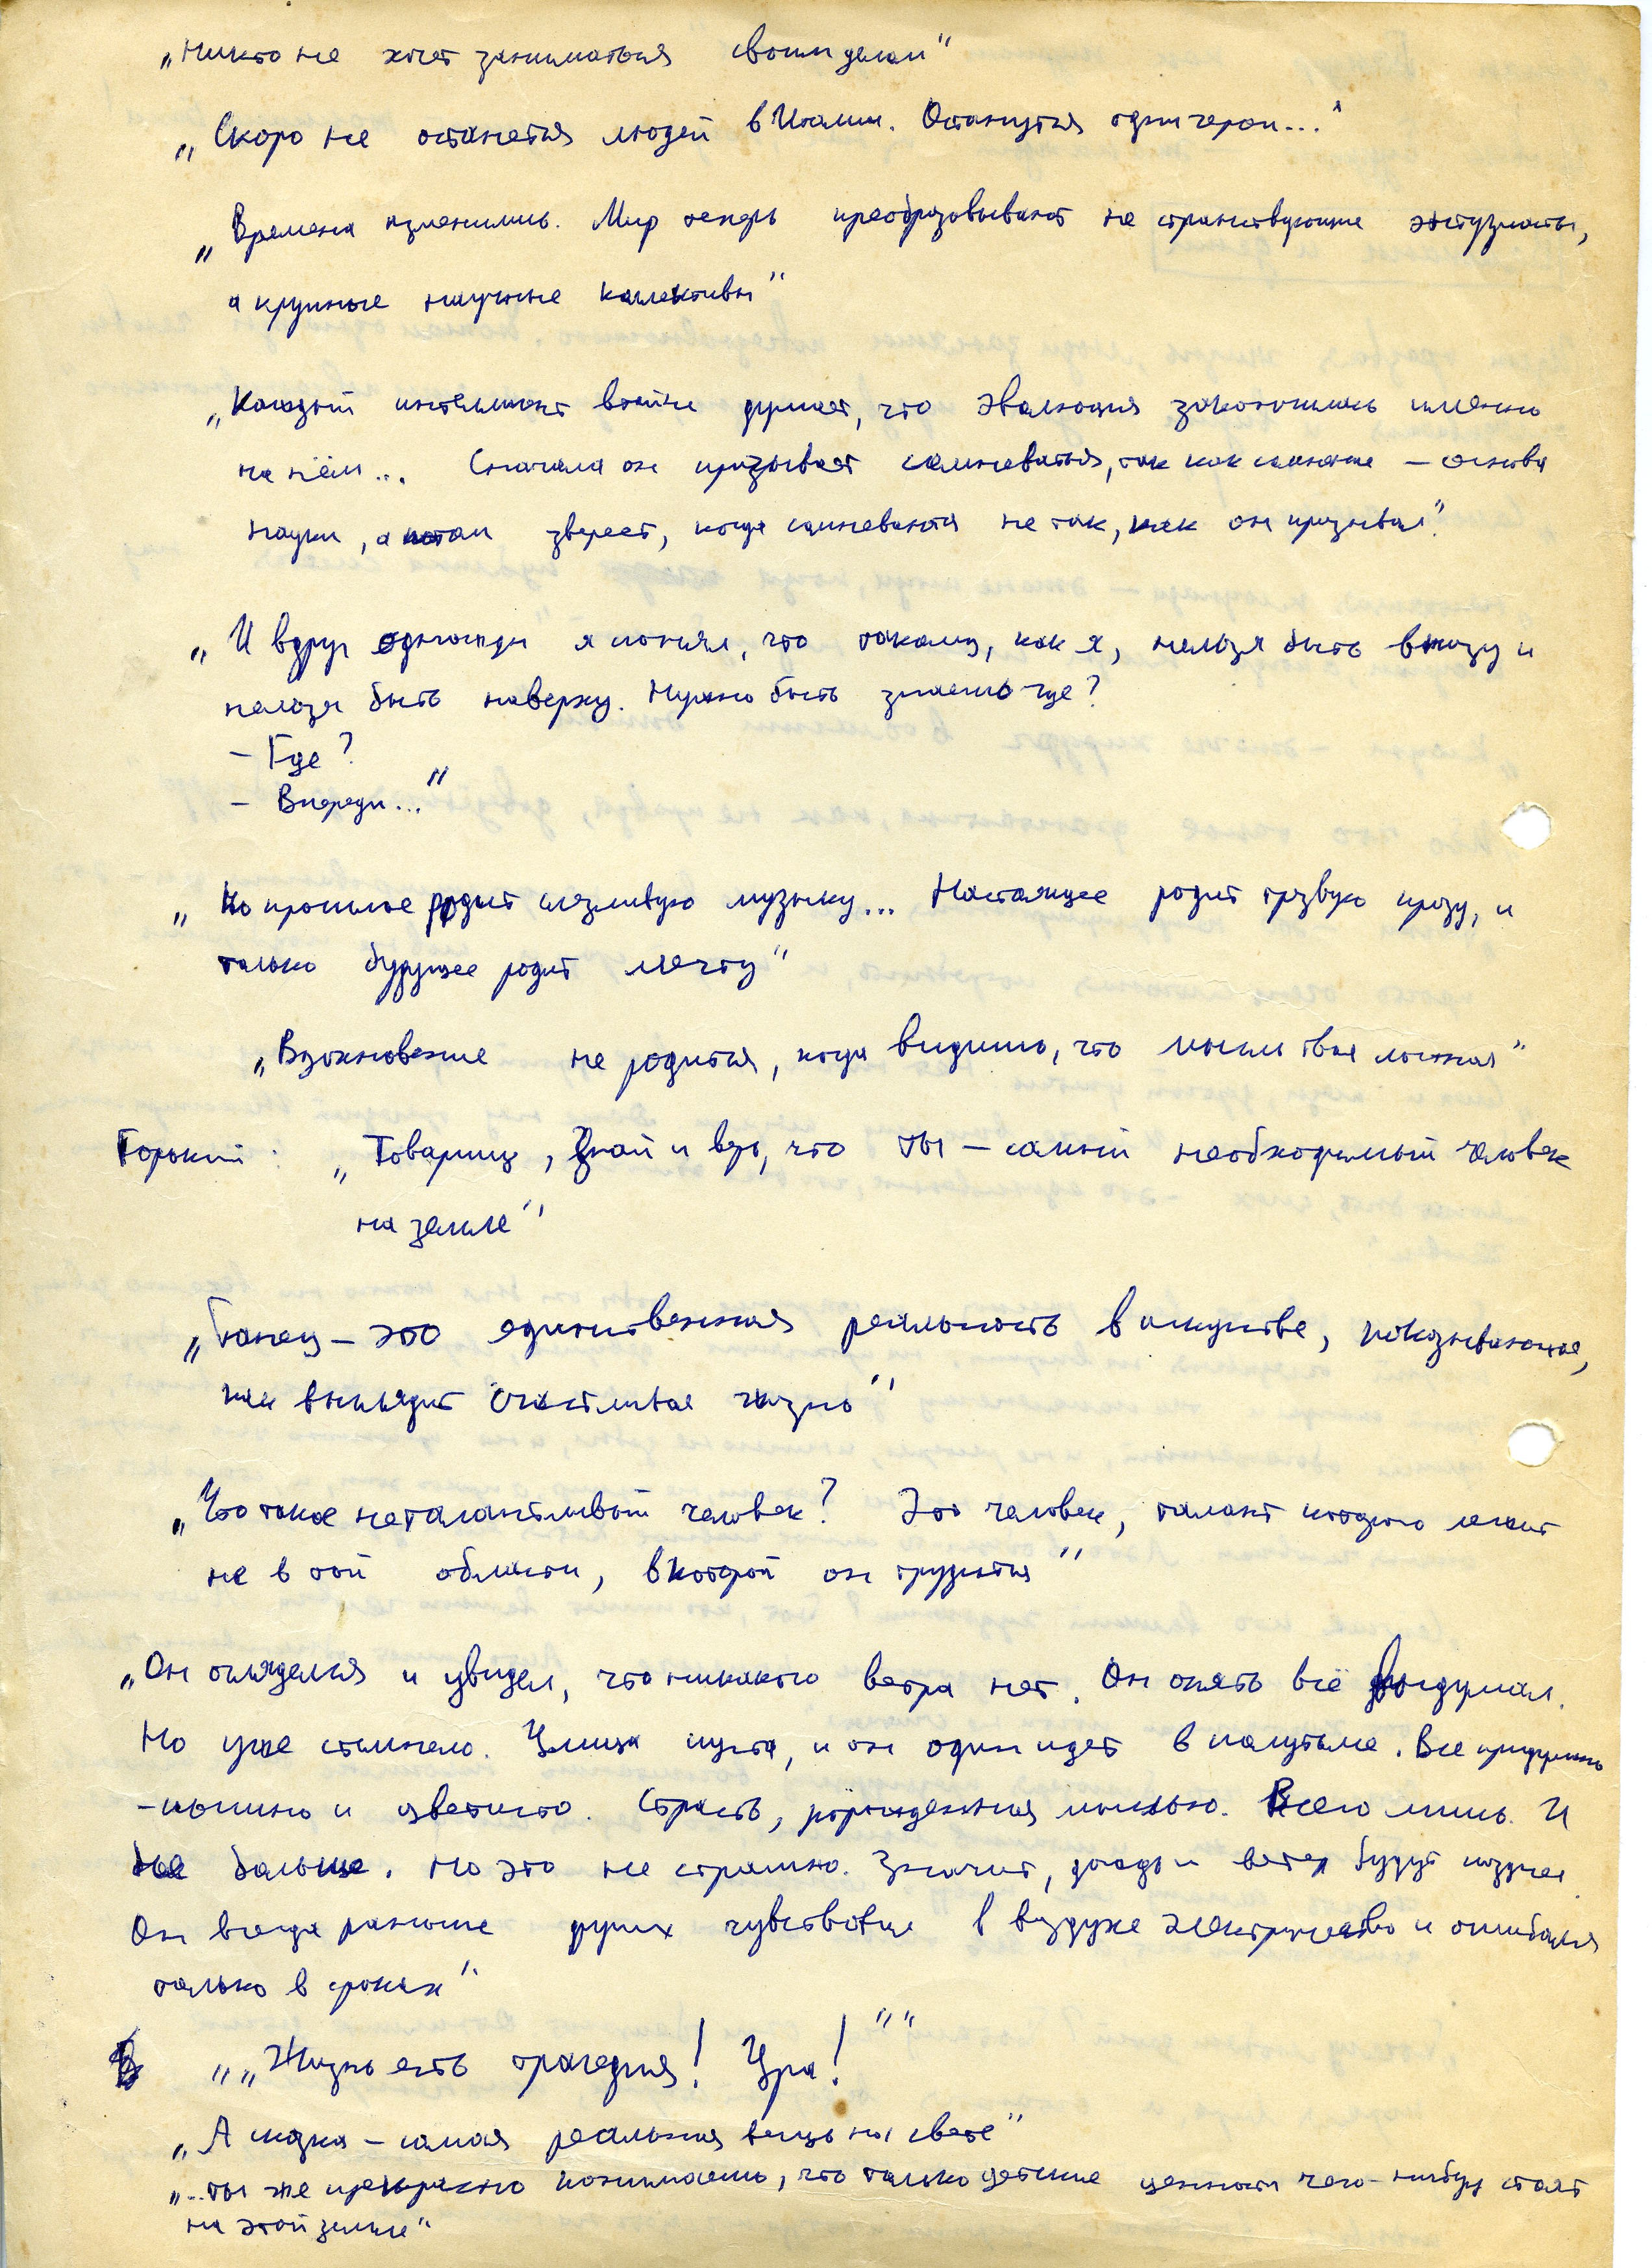 „Никто не хочет заниматься своим делом“
„Скоро не останется людей в Италии. Останутся одни герои...“
„Времена изменились. Мир теперь преобразовывают не странствующие энтузиасты,
а крупные научные коллективы“
„Каждый интеллигент втайне думает, что эволюция закончилась именно
на нём... Сначала он призывает сомневаться, так как сомнение – основа
науки, а потом звереет, когда сомневаются не так, как он призывал“.
„И вдруг однажды я понял, что такому, как я, нельзя быть внизу и
нельзя быть наверху. Нужно быть знаешь где?
– Где?
– Впереди...“
„Но прошлое родит слезливую музыку... Настоящее родит трезвую прозу, и
только будущее родит мечту“
„Вдохновение не родится, когда видишь, что мысль твоя ложная“
Горький: „Товарищ, Знай и верь, что ты – самый необходимый человек
на земле“
„Танец – это единственная реальность в искусстве, показывающая,
как выглядит счастливая жизнь“
„Что такое неталантливый человек? Это человек, талант которого лежит
не в той области, в которой он трудится“
„Он огляделся и увидел, что никакого ветра нет. Он опять всё выдумал.
Но уже стемнело. Улица пуста, и он один идет в полутьме. Все придумано
– пышно и цветисто. Страсть, порожденная мыслью. Всего лишь. И
не больше. Но это не страшно. Значит, дождь и ветер будут позднее.
Он всегда раньше других чувствовал в воздухе электричество и ошибался
только в сроках“
„„Жизнь есть трагедия! Ура!““
„А сказка – самая реальная вещь на свете“
„...ты же прекрасно понимаешь, что только детские ценности чего-нибудь стоят
на этой земле“